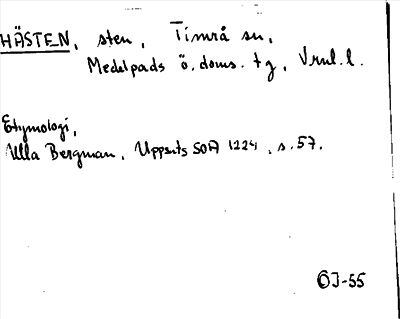 HÄSTEN, sten, Timrå sn,
Medelpads ö. doms. tg, Vnrl. l.
Etymologi,
Ulla Bergman, Uppsats SOA 1224, s. 57.
OJ-55